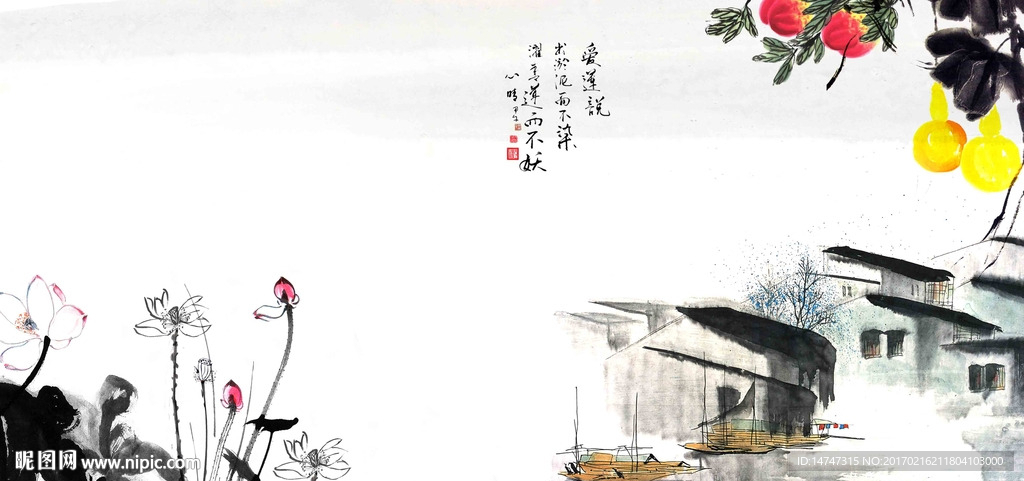 爱莲说
出淤泥而不染
濯清涟而不妖
心晴
昵图网 www.nipic.com
ID:14747315 NO:20170216211804103000